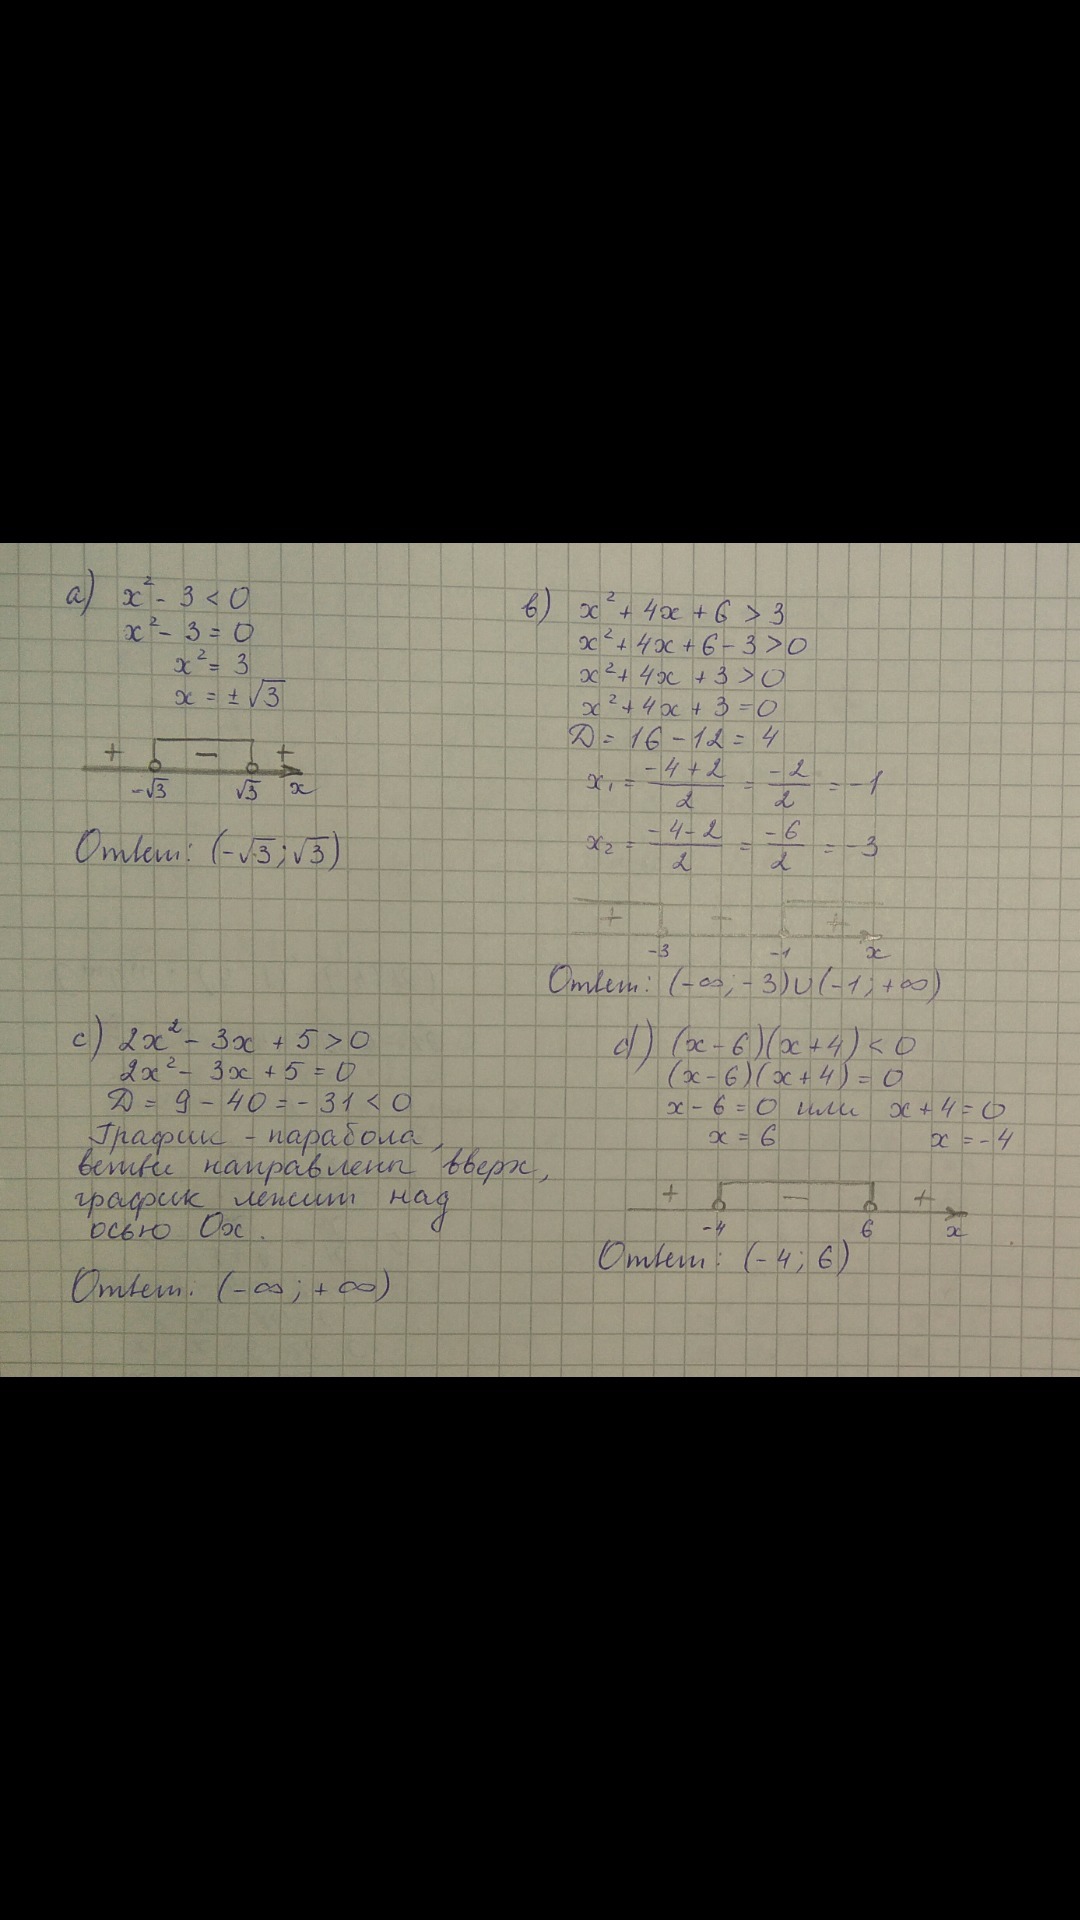 а) x² - 3 < 0
x² - 3 = 0
x² = 3
x = ± √3
+ − +
-√3 √3 x
Ответ: (-√3; √3)
в) x² + 4x + 6 > 3
x² + 4x + 6 - 3 > 0
x² + 4x + 3 > 0
x² + 4x + 3 = 0
D = 16 - 12 = 4
x₁ = (-4+2)/2 = -2/2 = -1
x₂ = (-4-2)/2 = -6/2 = -3
+ − +
-3 -1 x
Ответ: (-∞; -3)∪(-1; +∞)
c) 2x² - 3x + 5 > 0
2x² - 3x + 5 = 0
D = 9 - 40 = -31 < 0
График - парабола,
ветви направлены вверх,
график лежит над
осью Ox.
Ответ: (-∞; +∞)
d) (x-6)(x+4) < 0
(x-6)(x+4) = 0
x-6=0 или x+4=0
x = 6 x = -4
+ − +
-4 6 x
Ответ: (-4; 6)